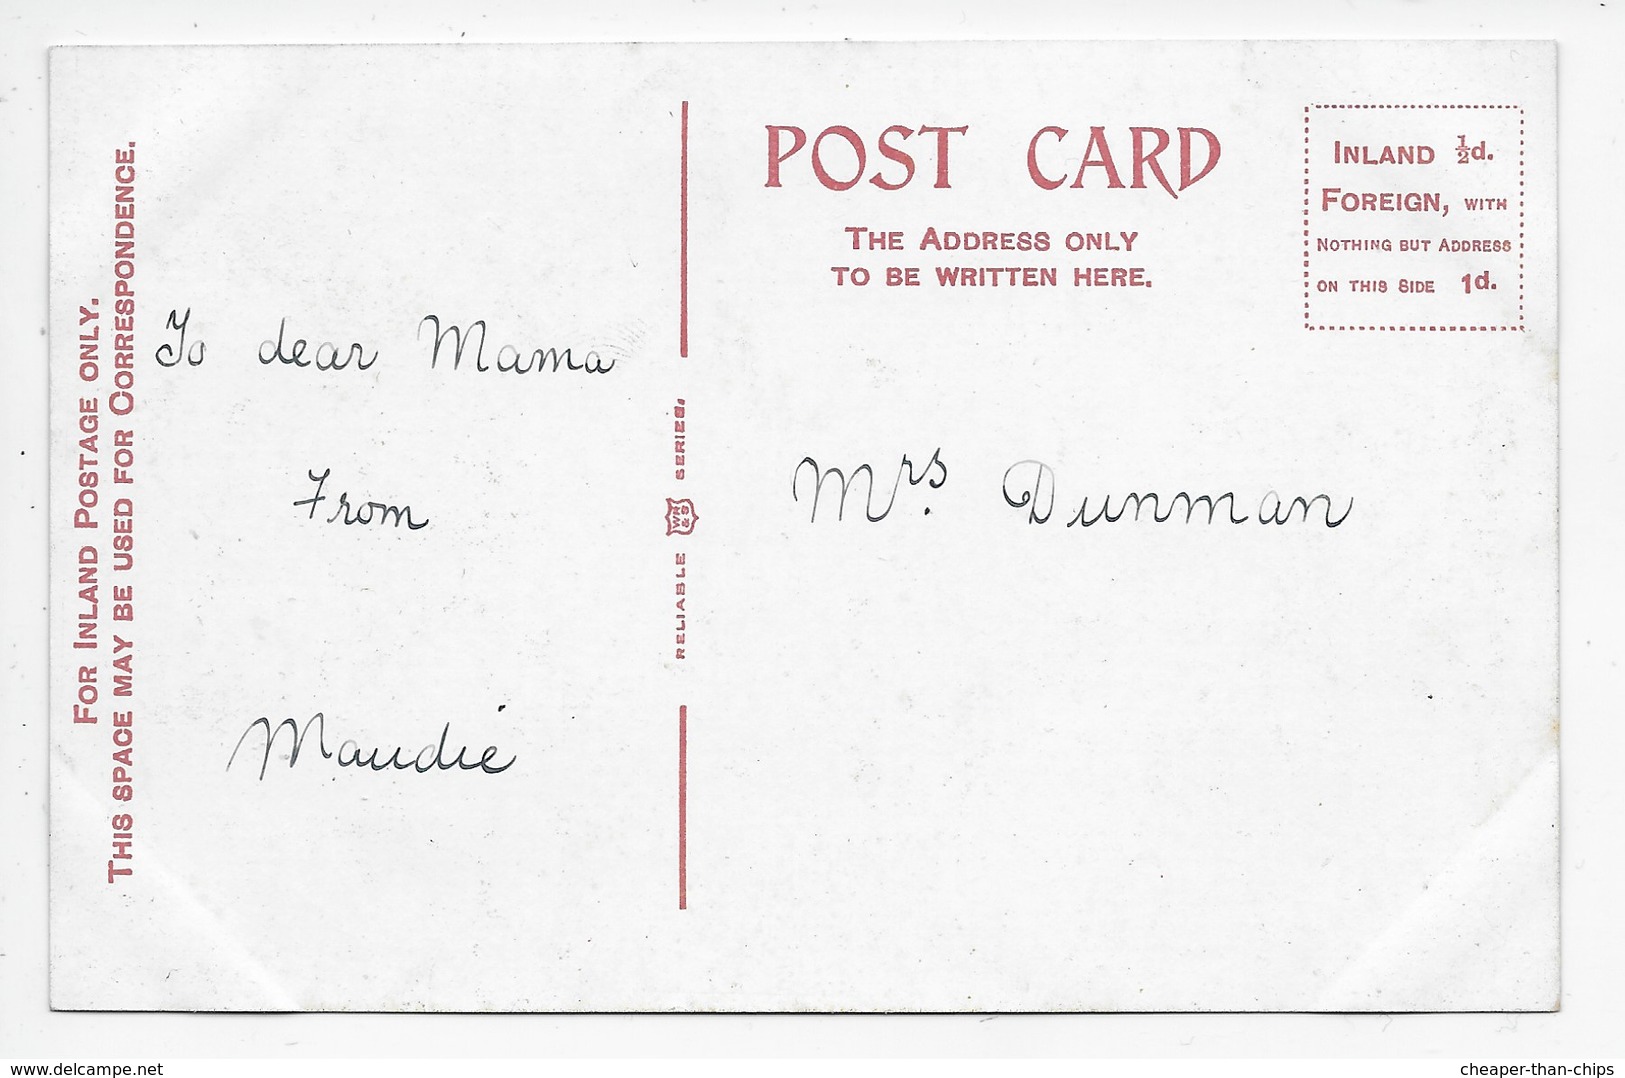 FOR INLAND POSTAGE ONLY.
THIS SPACE MAY BE USED FOR CORRESPONDENCE.
To dear Mama
From
Maudie
RELIABLE WR&S SERIES.
POST CARD
THE ADDRESS ONLY
TO BE WRITTEN HERE.
INLAND ½d.
FOREIGN, WITH
NOTHING BUT ADDRESS
ON THIS SIDE 1d.
Mrs. Dunman
www.delcampe.net
cheaper-than-chips